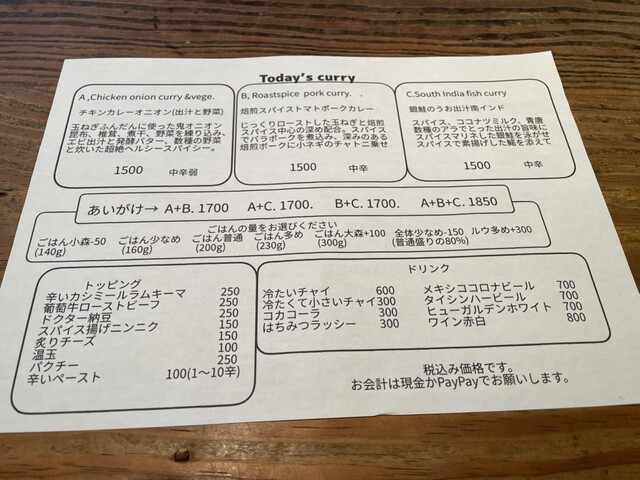 Today's curry
A ,Chicken onion curry &vege.
チキンカレーオニオン(出汁と野菜)
玉ねぎふんだんに使った鬼オニオン
昆布、椎茸、煮干、野菜を練り込み、
エビ出汁と発酵バター、数種の野菜
と炊いた超絶ヘルシースパイシー。
1500 中辛弱
B, Roastspice pork curry. .
焙煎スパイストマトポークカレー
じっくりローストした玉ねぎと焙煎
スパイス中心の深め配合。スパイス
でバラポークを煮込み、深みのある
焙煎ポークに小ネギのチャトニ乗せ
1500 中辛
C.South India fish curry
銀鮭のうお出汁南インド
スパイス、ココナツミルク、青唐
数種のアラでとった出汁の旨味に
スパイスマリネした銀鮭を泳がせ
スパイスで素揚げした鯱を添えて
1500 中辛
あいがけ→ A+B. 1700 A+C. 1700. B+C. 1700. A+B+C. 1850
ごはんの量をお選びください
ごはん小森-50 ごはん少なめ ごはん普通 ごはん多め ごはん大森+100 全体少なめ-150 ルウ多め+300
(140g) (160g) (200g) (230g) (300g) (普通盛りの80%)
トッピング
辛いカシミールラムキーマ 250
葡萄牛ローストビーフ 250
ドクター納豆 250
スパイス揚げニンニク 150
炙りチーズ 150
温玉 100
パクチー 250
辛いペースト 100(1～10辛)
ドリンク
冷たいチャイ 600
冷たくて小さいチャイ300
コカコーラ 300
はちみつラッシー 300
メキシココロナビール 700
タイシンハービール 700
ヒューガルデンホワイト 700
ワイン赤白 800
税込み価格です。
お会計は現金かPayPayでお願いします。